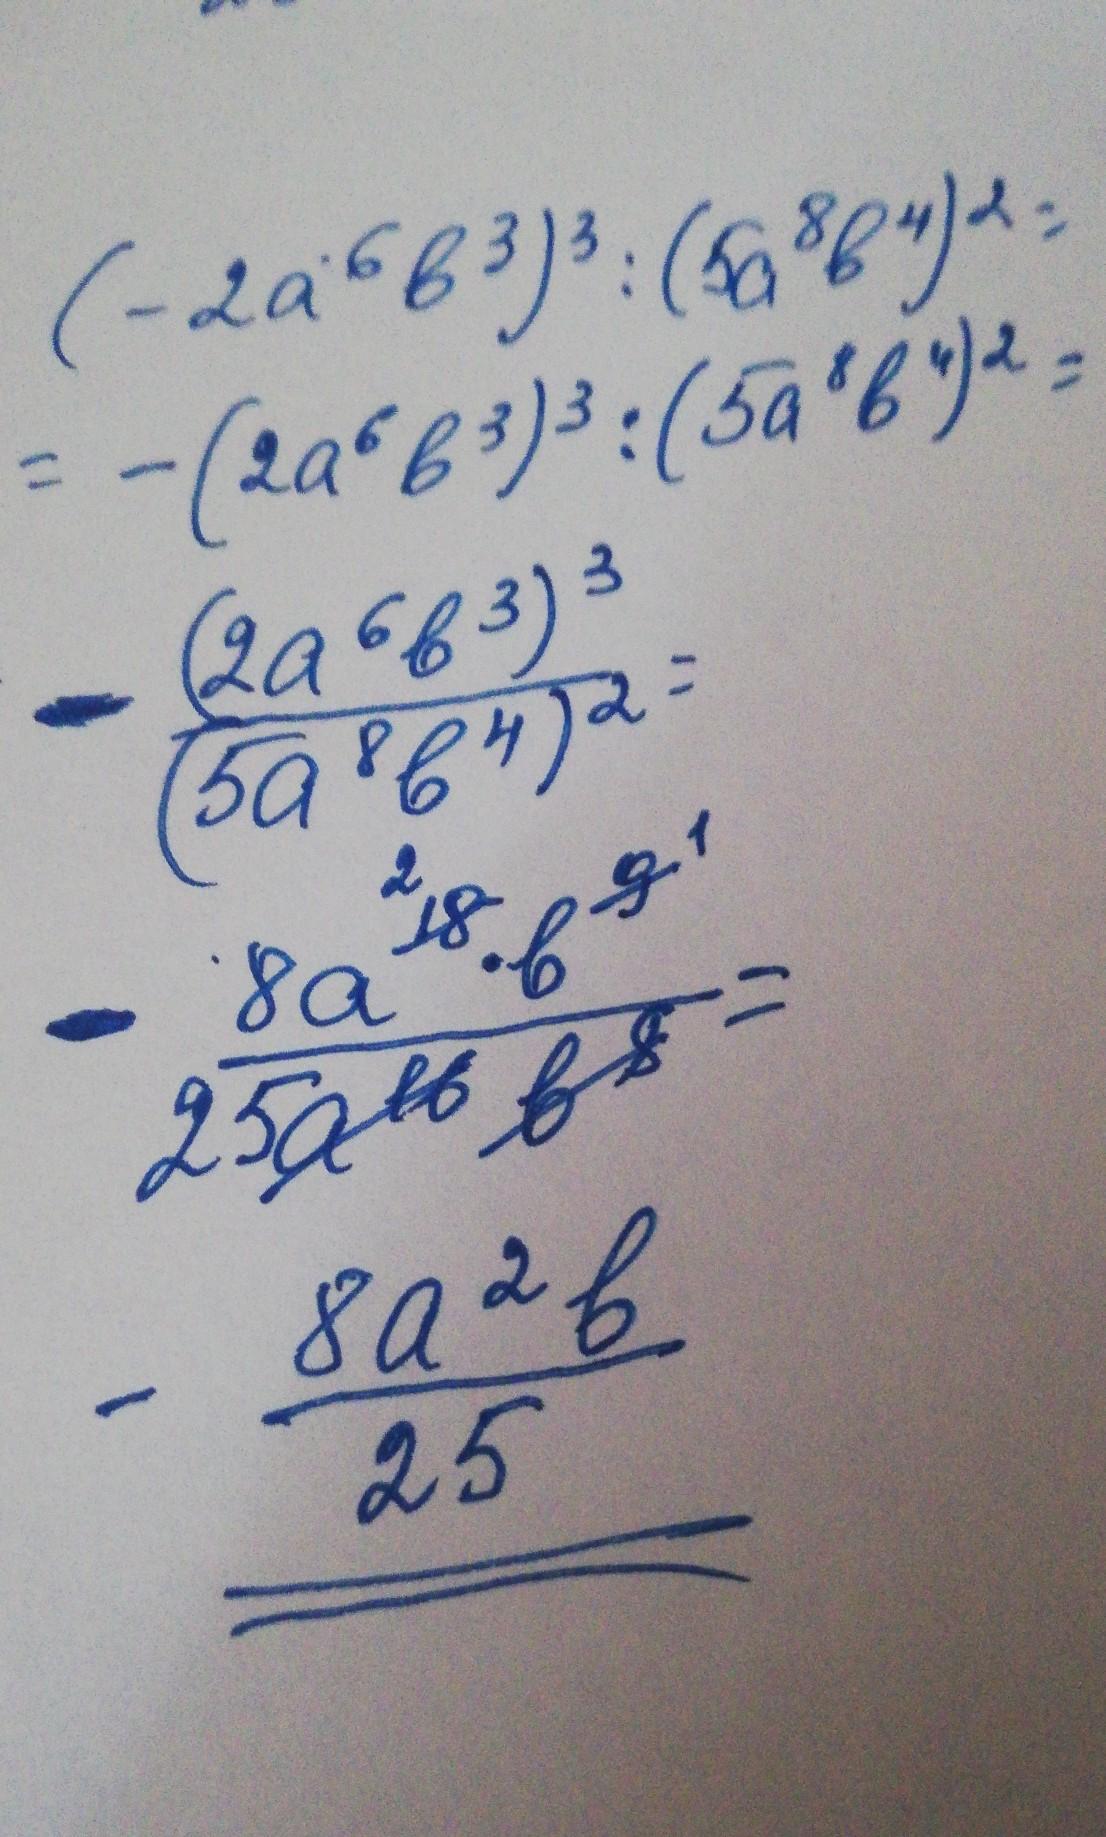 (-2a⁶b³)³:(5a⁸b⁴)²=
=-(2a⁶b³)³:(5a⁸b⁴)²=
-(2a⁶b³)³/(5a⁸b⁴)²=
2 1
-8a¹⁸·b⁹/25a¹⁶b⁸=
-8a²b/25